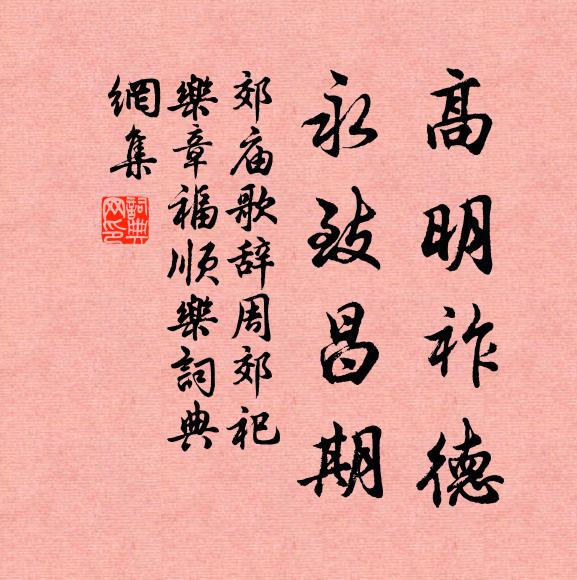 高明祚德
永致昌期
郊庙歌辞周郊祀
樂章福順樂詞典
網集
詞典
网印